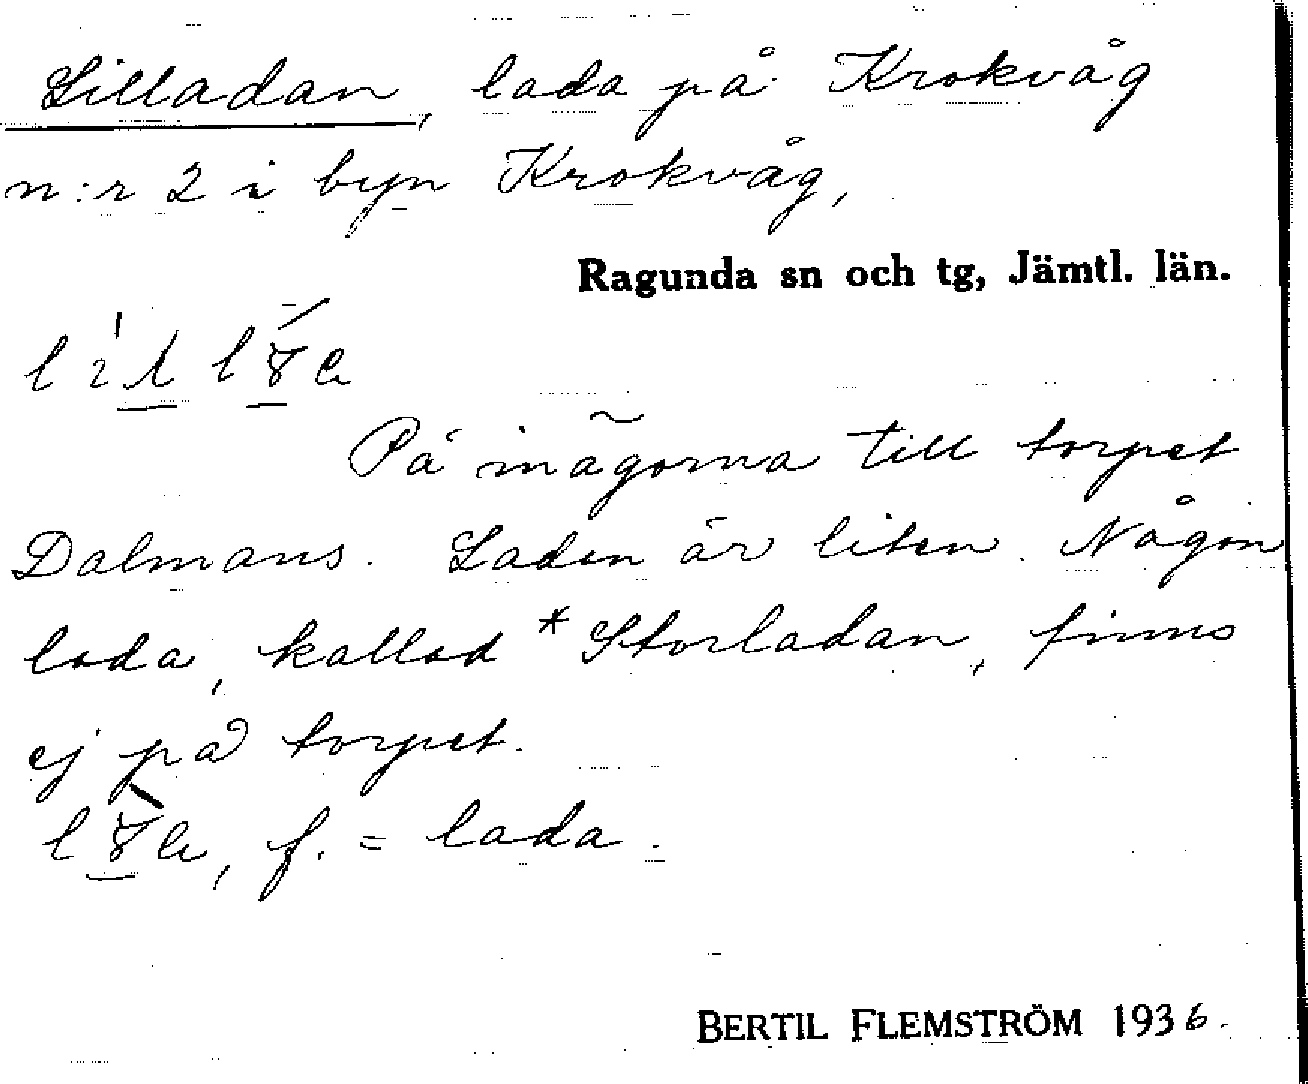 Lilladan, lada på Krokvåg
n:r 2 i byn Krokvåg,
Ragunda sn och tg, Jämtl. län.
På inägorna till torpet
Dalmans. Laden är liten. Någon
lada, kallad *Storladan, finns
ej på torpet.
f. = lada.
BERTIL FLEMSTRÖM 1936.